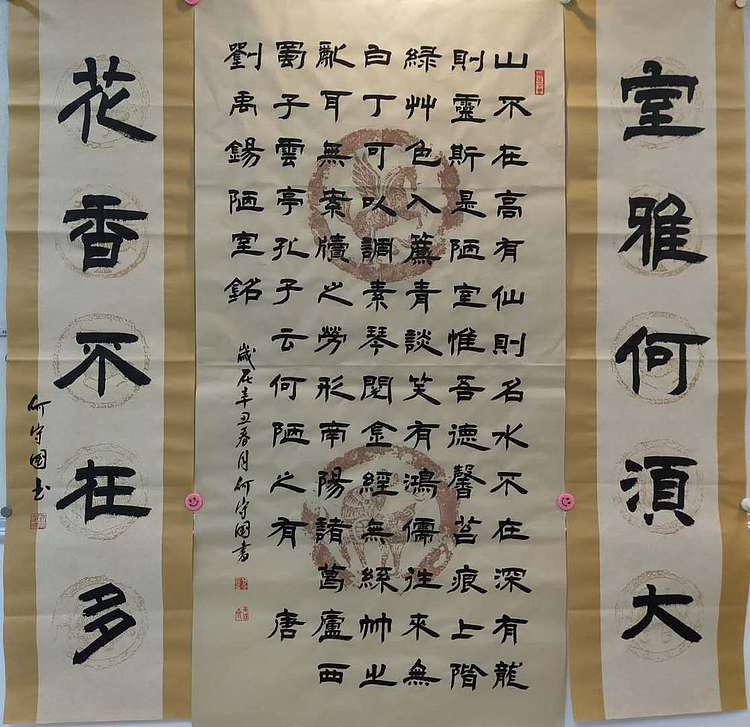 室雅何須大
山不在高有仙則名水不在深有龍
則靈斯是陋室惟吾德馨苔痕上階
綠艸色入簾青談笑有鴻儒往來無
白丁可以調素琴閱金經無絲竹之
亂耳無案牘之勞形南陽諸葛廬西
蜀子雲亭孔子云何陋之有 唐
劉禹錫陋室銘
歲在辛丑春月何守國書
花香不在多
何守國书